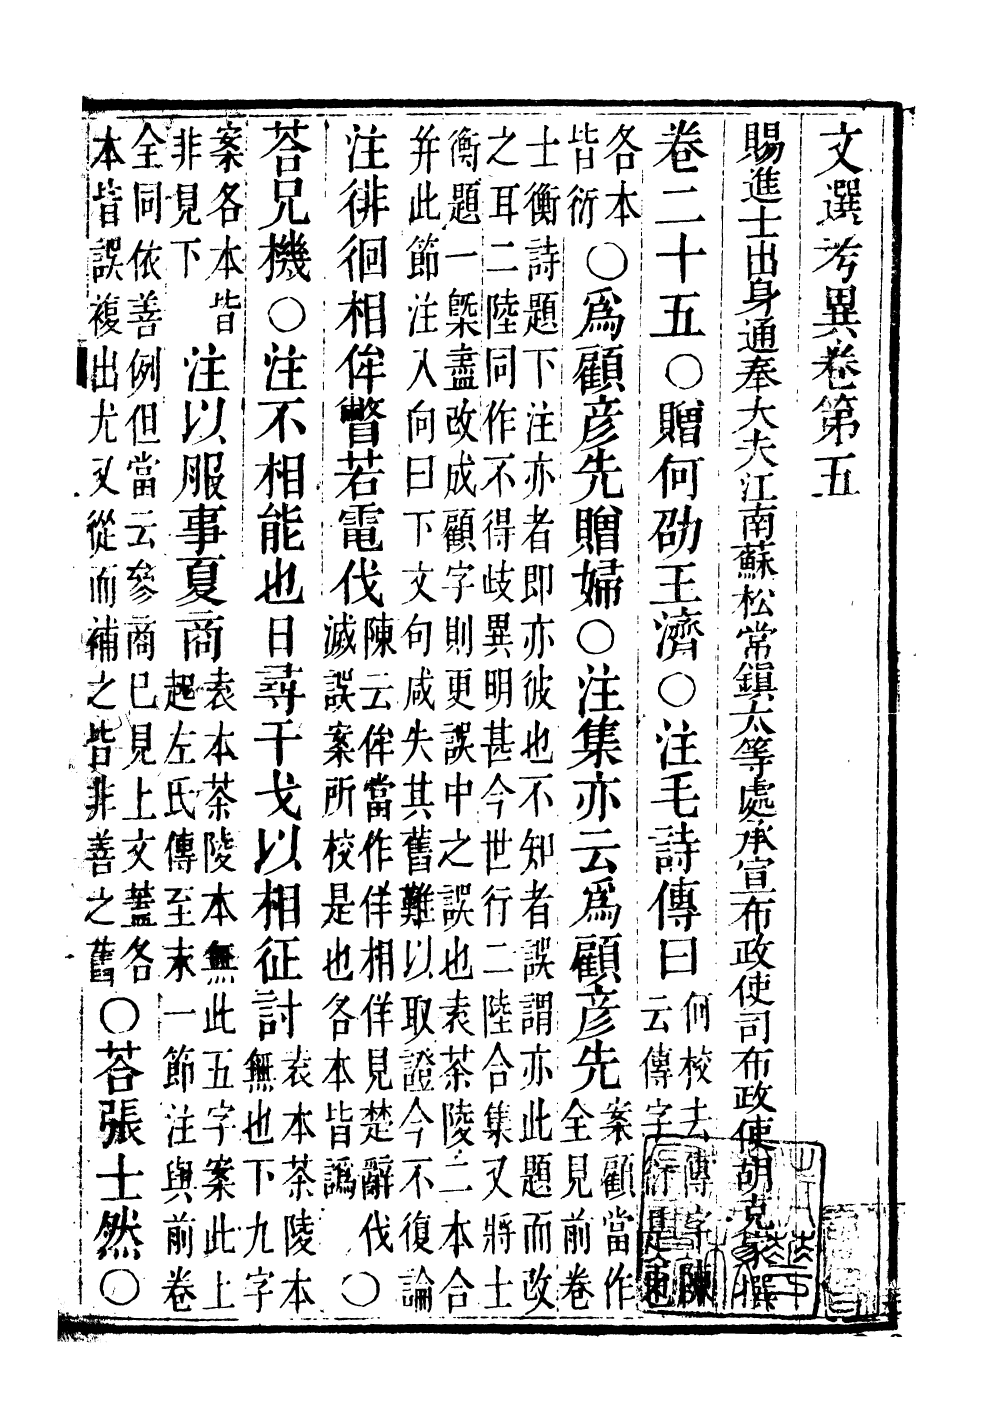 文選考異卷第五
賜進士出身通奉大夫江南蘇松常鎮太等處承宣布政使司布政使胡克家撰
卷二十五○贈何劭王濟○注毛詩傳曰何校去傳字陳云傳字衍是也
各本皆衍○為顧彥先贈婦○注集亦云為顧彥先案顧當作全見前卷
士衡詩題下注亦者即亦彼也不知者誤謂亦此題而改
之耳二陸同作不得歧異明甚今世行二陸合集又將士
衡題一槩盡改成顧字則更誤中之誤也袁茶陵二本合
并此節注入向曰下文句咸失其舊難以取證今不復論
注徘徊相侔瞥若電伐陳云侔當作佯相佯見楚辭伐滅誤案所校是也各本皆譌○
荅兄機○注不相能也日尋干戈以相征討袁本茶陵本無也下九字
案各本皆非見下注以服事夏商袁本茶陵本無此五字案此上起左氏傳至末一節注與前卷
全同依善例但當云參商已見上文蓋各本皆誤複出尤又從而補之皆非善之舊○荅張士然○